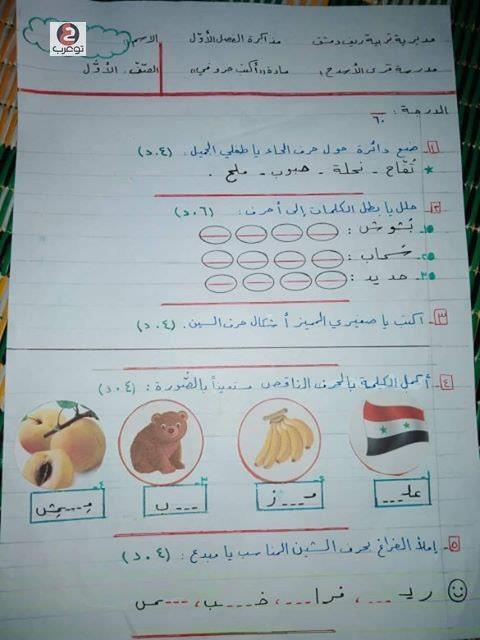 توعرب
مديرية تربية ريف دمشق مذاكرة الفصل الأوّل الاسم:
مدرسة قرى الأسد ح١ مادة: ((أكتب حروفي)) الصّف: الأوّل
الدرجة: ٦٠
١- ضع دائرة حول حرف الحاء يا طفلي الجميل. (٤.د)
★ تُفّاح - نحلة - حبوب - ملح .
٢- حلل يا بطل الكلمات إلى أحرف: (٦.د)
١- بَشوش :
٢- سَحاب :
٣- حديد :
٣- أكتب يا صغيري المميز أشكال حرف السين. (٤.د)
٤- أكمل الكلمة بالحرف الناقص مستعيناً بالصّورة: (٤.د)
١ ٢ ٣ ٤
علـ--- مـ---ز ---ب مِـ---مِش
٥- إملأ الفراغ بحرف الشين المناسب يا مبدع: (٤.د)
ريـ---، فرا---، خـ---ـب، ---مس